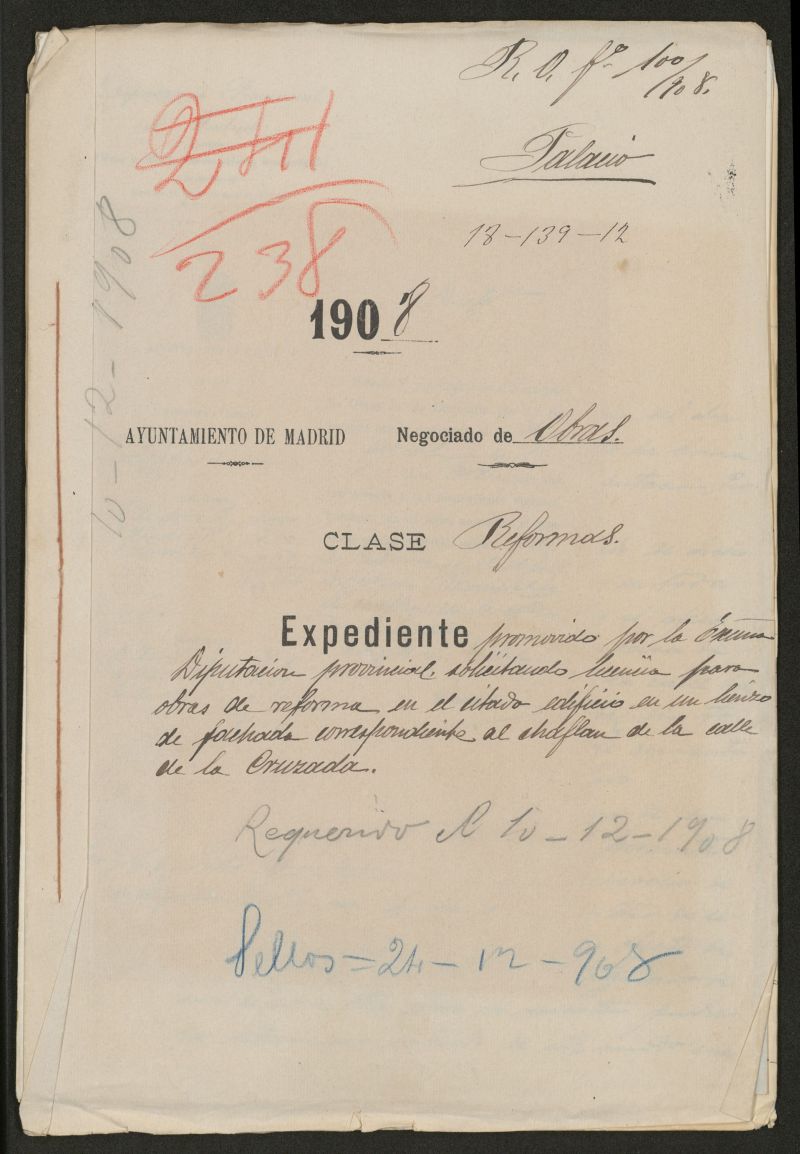 R. O. fº 100/908.
Palacio
18-139-12
238
1908
10-12-1908
AYUNTAMIENTO DE MADRID Negociado de Obras.
CLASE Reformas.
Expediente promovido por la Excma
Diputacion provincial solicitando licencia para
obras de reforma en el citado edificio en un lienzo
de fachada correspondiente al chaflan de la calle
de la Cruzada.
Requerido 10-12-1908
Sellos=24-12-908